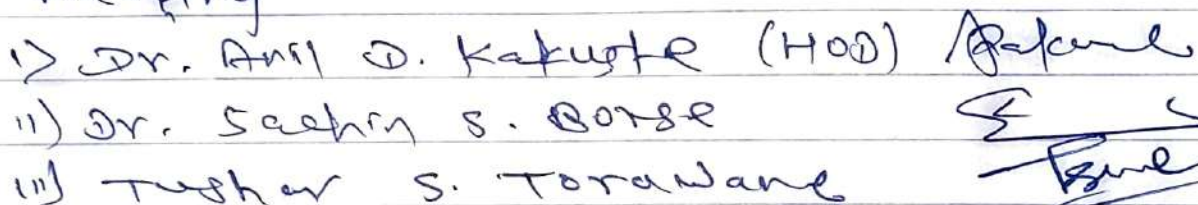 i) Dr. Anil D. Kakuste (HOD)
ii) Dr. Sachin S. Borse
iii) Tushar S. Torawane